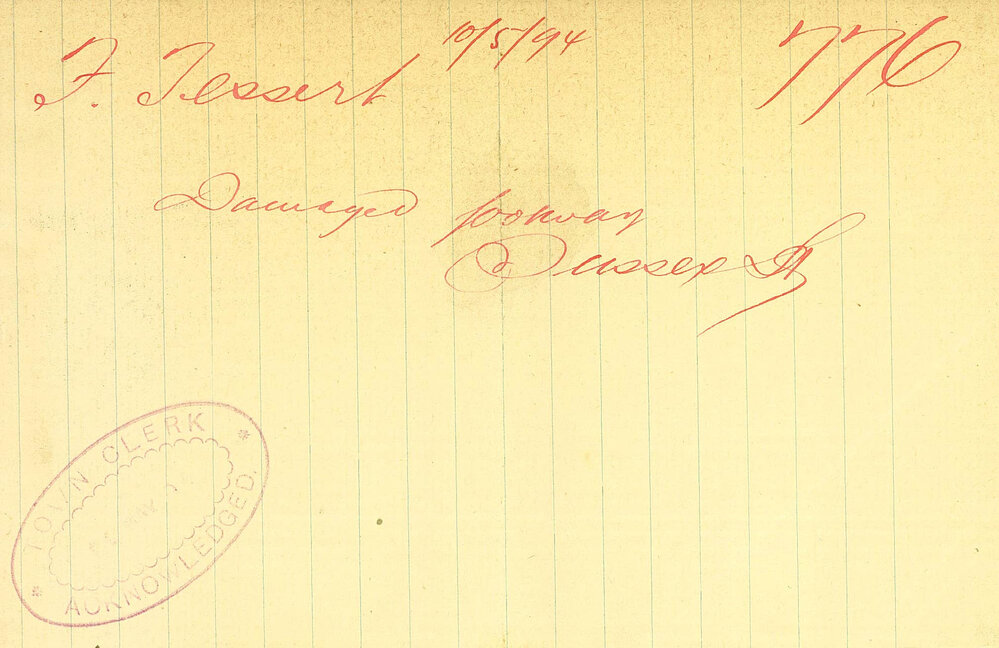 F. Tessert 10/5/94 776
Damaged footway
Sussex St
TOWN CLERK
MAY
ACKNOWLEDGED.